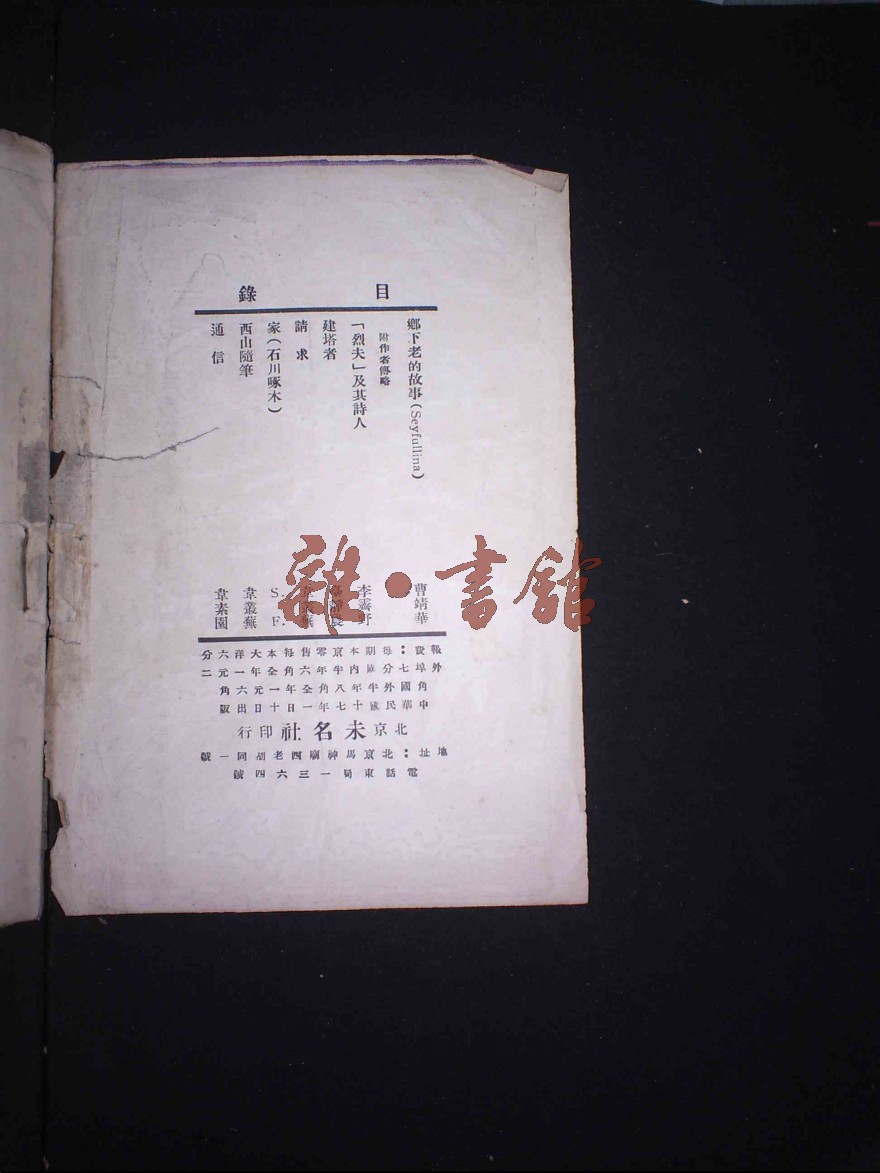 目錄
鄉下老的故事(Seyfullina) 曹靖華
附作者傳略
「烈夫」及其詩人 李霽野
建塔者 臺靜農
請求 韋叢蕪
家(石川啄木) S. F.
西山隨筆 韋叢蕪
通信 韋素園
報費：每期本京零售每本大洋六分
外埠七分國內半年六角全年一元二
角國外半年八角全年一元六角
中華民國十七年一月十日出版
北京未名社印行
地址：北京馬神廟西老胡同一號
電話東局一三六四號
雜·書館